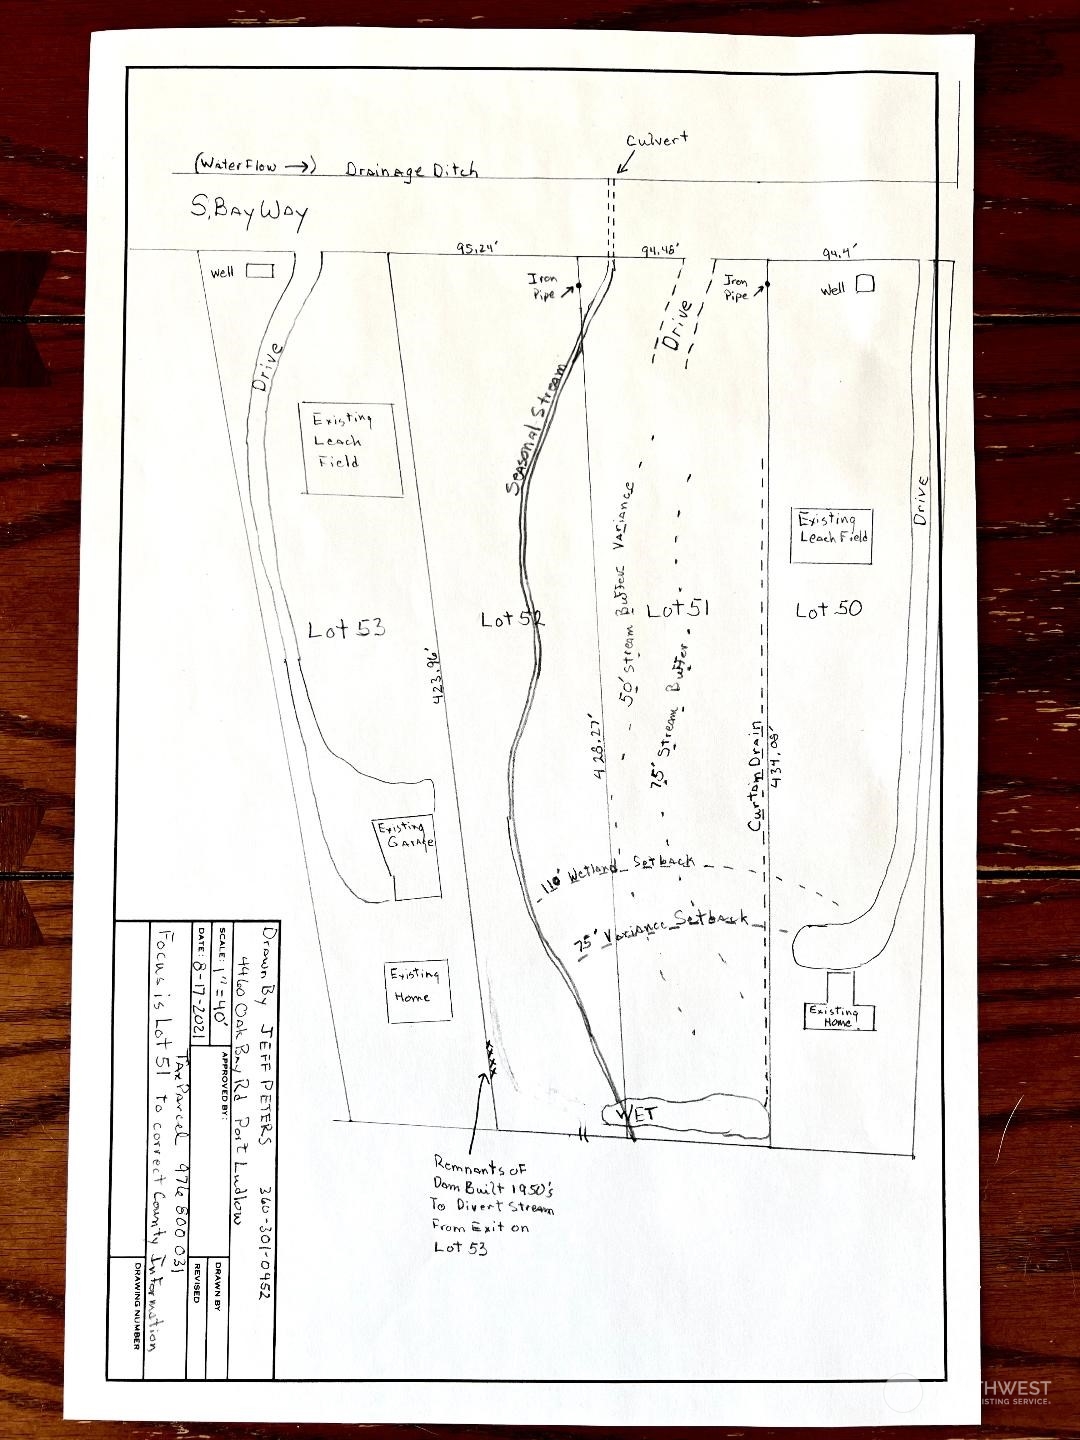 Culvert
(Water Flow →) Drainage Ditch
S. Bay Way
95.24'
94.48'
94.4'
Well
Iron
Pipe
Drive
Iron
Pipe
Well
Drive
Seasonal Stream
Existing
Leach
Field
50' Stream Buffer Variance
Drive
Existing
Leach Field
Lot 53
Lot 52
Lot 51
Lot 50
423.96'
428.27'
75' Stream Buffer
Curtain Drain
434.08'
Existing
Garage
110' Wetland Setback
75' Variance Setback
Existing
Home
Existing
Home
xxxx
WET
Remnants of
Dam Built 1950's
To Divert Stream
From Exit on
Lot 53
Drawn By JEFF PETERS 360-301-0452
4460 Oak Bay Rd Port Ludlow
SCALE: 1" = 40'
APPROVED BY:
DRAWN BY
DATE: 8-17-2021
REVISED
Tax Parcel 976 800 031
Focus is Lot 51 to correct County Information
DRAWING NUMBER
THWEST
ISTING SERVICE